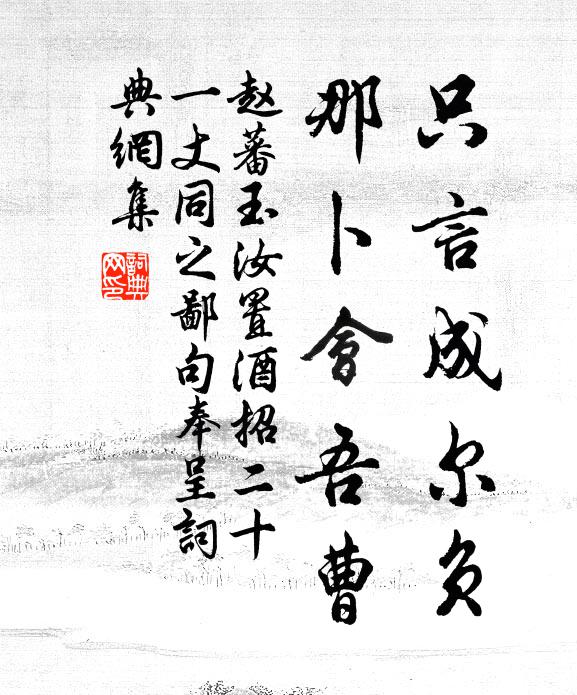 只言成尔负
那卜會吾曹
赵蕃玉汝置酒招二十
一丈同之鄙句奉呈詞
典網集
詞典网印